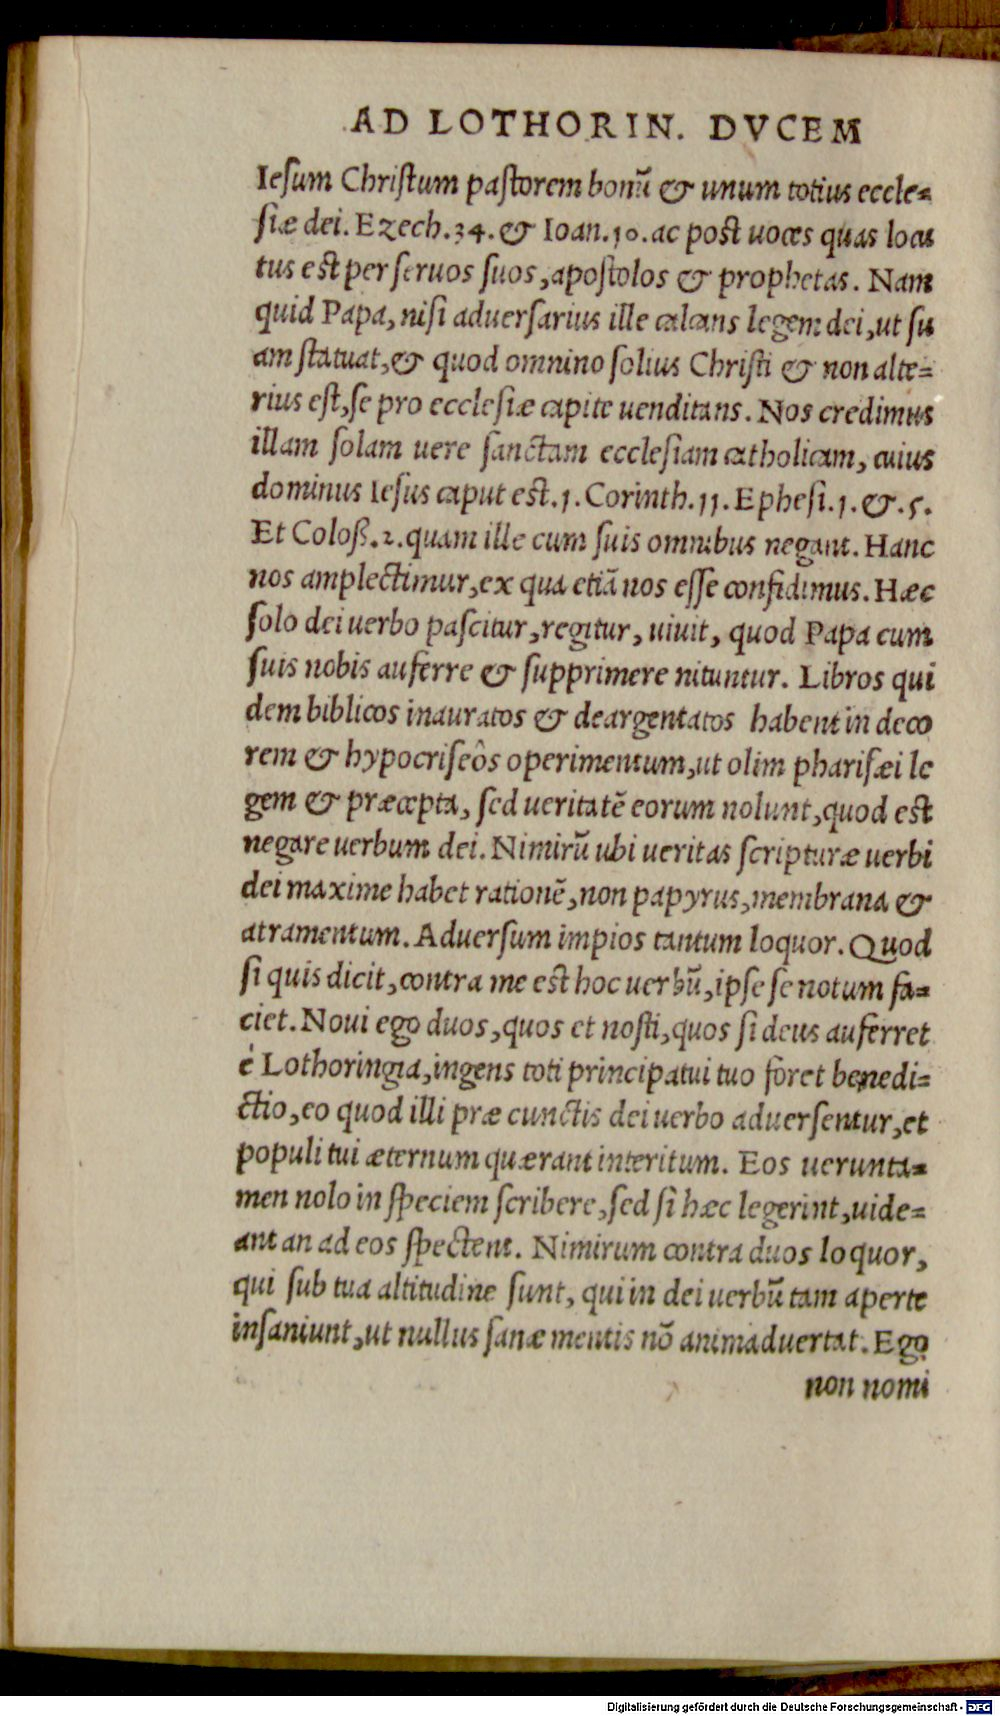 AD LOTHORIN. DVCEM
Iesum Christum pastorem bonũ & unum totius eccle=
siæ dei. Ezech. 34. & Ioan. 10. ac post uoces quas locu
tus est per seruos suos, apostolos & prophetas. Nam
quid Papa, nisi aduersarius ille calcans legem dei, ut su
am statuat, & quod omnino solius Christi & non alte=
rius est, se pro ecclesiæ capite uenditans. Nos credimus
illam solam uere sanctam ecclesiam catholicam, cuius
dominus Iesus caput est. 1. Corinth. 11. Ephesi. 1. &. 5.
Et Coloß. 2. quam ille cum suis omnibus negant. Hanc
nos amplectimur, ex qua etiã nos esse confidimus. Hæc
solo dei uerbo pascitur, regitur, uiuit, quod Papa cum
suis nobis auferre & supprimere nituntur. Libros qui
dem biblicos inauratos & deargentatos habent in deco
rem & hypocriseôs operimentum, ut olim pharisæi le
gem & præcepta, sed ueritatẽ eorum nolunt, quod est
negare uerbum dei. Nimirũ ubi ueritas scripturæ uerbi
dei maxime habet rationẽ, non papyrus, membrana &
atramentum. Aduersum impios tantum loquor. Quod
si quis dicit, contra me est hoc uerbũ, ipse se notum fa=
ciet. Noui ego duos, quos et nosti, quos si deus auferret
è Lothoringia, ingens toti principatui tuo foret benedi=
ctio, eo quod illi præ cunctis dei uerbo aduersentur, et
populi tui æternum quærant interitum. Eos uerunta=
men nolo in speciem scribere, sed si hæc legerint, uide=
ant an ad eos spectent. Nimirum contra duos loquor,
qui sub tua altitudine sunt, qui in dei uerbũ tam aperte
insaniunt, ut nullus sanæ mentis nõ animaduertat. Ego
non nomi
Digitalisierung gefördert durch die Deutsche Forschungsgemeinschaft - DFG